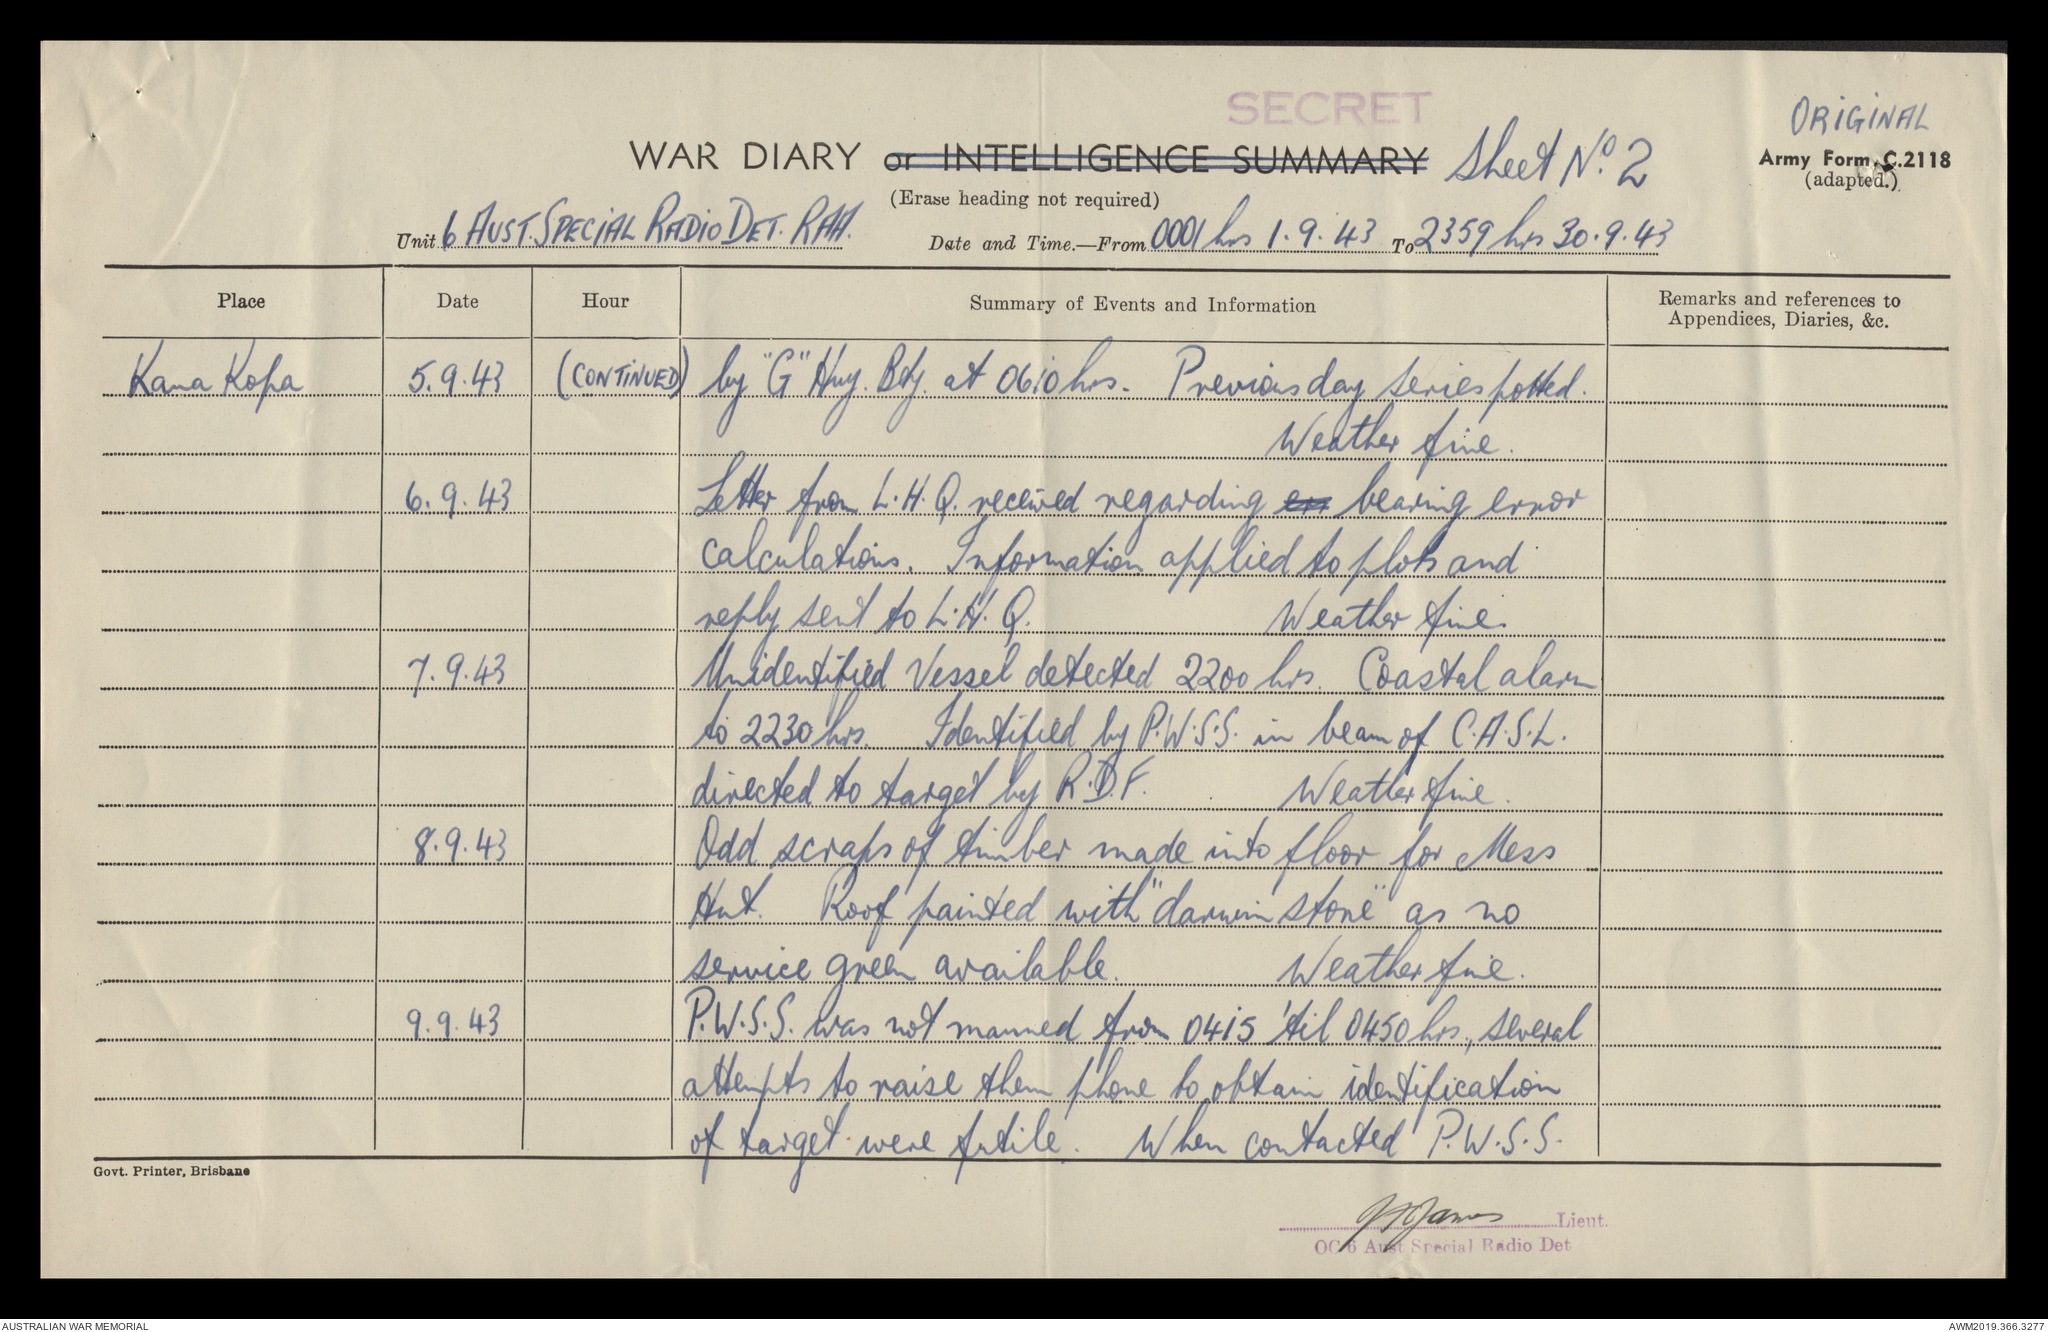 SECRET
ORIGINAL
WAR DIARY or INTELLIGENCE SUMMARY Sheet No. 2
Army Form C.2118
(adapted.)
(Erase heading not required)
Unit 6 AUST. SPECIAL RADIO DET. RAA. Date and Time.—From 0001 hrs 1.9.43 To 2359 hrs 30.9.43
Place Date Hour Summary of Events and Information Remarks and references to
Appendices, Diaries, &c.
Kana Kopa 5.9.43 (CONTINUED) by "G" Hvy. Bty. at 0610 hrs. Previous day series plotted.
Weather fine.
6.9.43 Letter from L.H.Q. received regarding err bearing error
calculations. Information applied to plots and
reply sent to L.H.Q. Weather fine.
7.9.43 Unidentified Vessel detected 2200 hrs. Coastal alarm
to 2230 hrs. Identified by P.W.S.S. in beam of C.A.S.L.
directed to target by R.D.F. Weather fine.
8.9.43 Odd scraps of timber made into floor for Mess
Hut. Roof painted with "darwin stone" as no
service green available. Weather fine.
9.9.43 P.W.S.S. was not manned from 0415 'til 0450 hrs., several
attempts to raise them phone to obtain identification
of target were futile. When contacted P.W.S.S.
Govt. Printer, Brisbane
James Lieut.
OC 6 Aust Special Radio Det
AUSTRALIAN WAR MEMORIAL AWM2019.366.3277